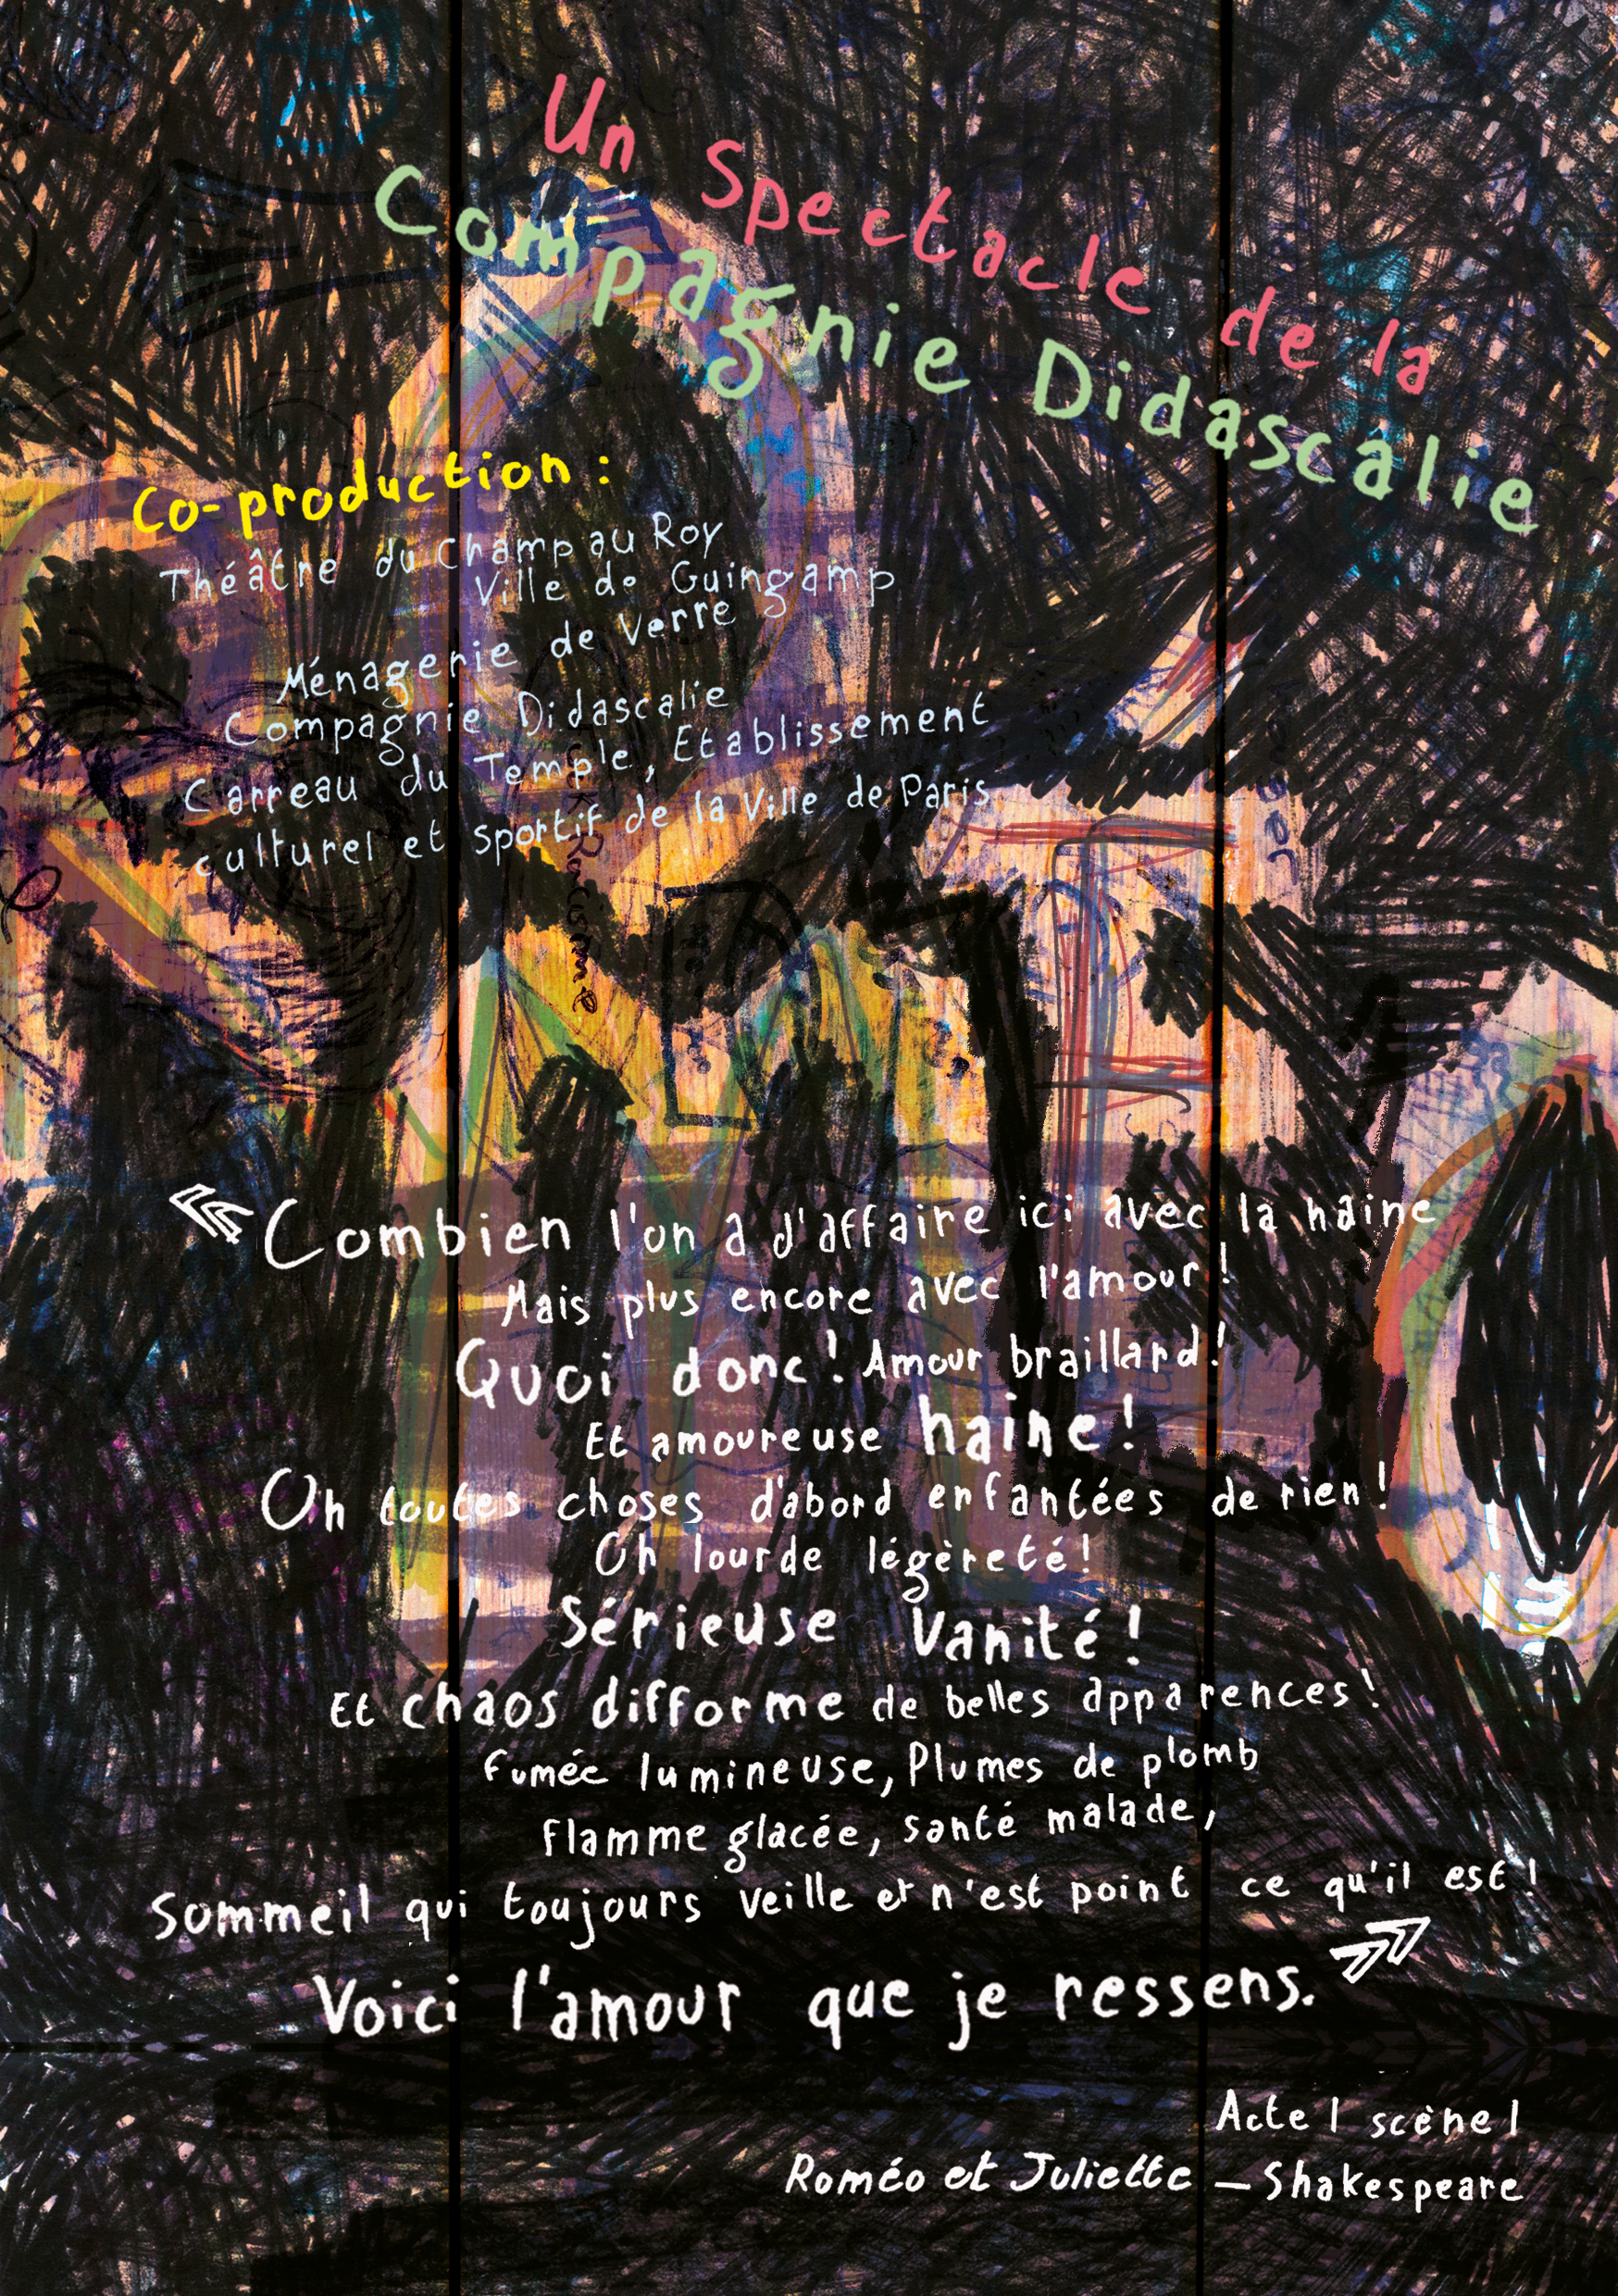 Un Spectacle de la
Compagnie Didascalie
Co-production :
Théâtre du Champ au Roy
Ville de Guingamp
Ménagerie de Verre
Compagnie Didascalie
Carreau du Temple, Etablissement
culturel et sportif de la Ville de Paris
Racisme
« Combien l'on a d'affaire ici avec la haine
Mais plus encore avec l'amour !
Quoi donc ! Amour braillard !
Et amoureuse haine !
Oh toutes choses d'abord enfantées de rien !
Oh lourde légèreté !
Sérieuse Vanité !
Et chaos difforme de belles apparences !
Fumée lumineuse, Plumes de plomb
Flamme glacée, santé malade,
Sommeil qui toujours veille et n'est point ce qu'il est !
Voici l'amour que je ressens. »
Acte I scène I
Roméo et Juliette – Shakespeare